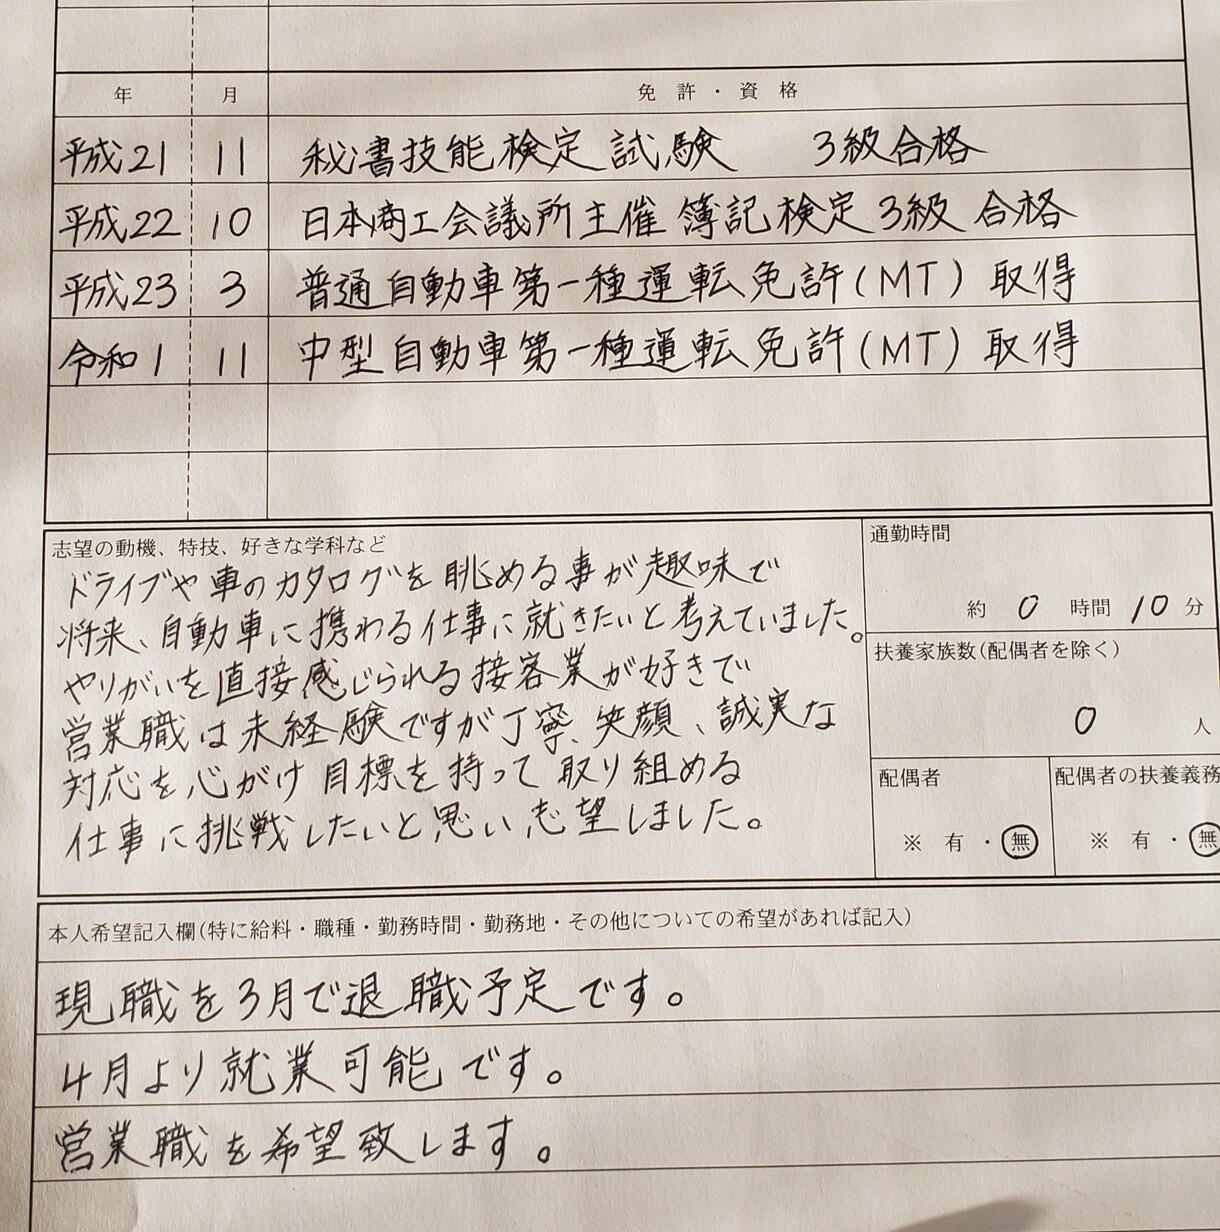 年 月 免許・資格
平成21 11 秘書技能検定試験 3級合格
平成22 10 日本商工会議所主催 簿記検定3級 合格
平成23 3 普通自動車第一種運転免許(MT)取得
令和1 11 中型自動車第一種運転免許(MT)取得
志望の動機、特技、好きな学科など
ドライブや車のカタログを眺める事が趣味で
将来、自動車に携わる仕事に就きたいと考えていました。
やりがいを直接感じられる接客業が好きで
営業職は未経験ですが丁寧、笑顔、誠実な
対応を心がけ目標を持って取り組める
仕事に挑戦したいと思い志望しました。
通勤時間
約 0 時間 10 分
扶養家族数(配偶者を除く)
0 人
配偶者
※ 有・無
配偶者の扶養義務
※ 有・無
本人希望記入欄(特に給料・職種・勤務時間・勤務地・その他についての希望があれば記入)
現職を3月で退職予定です。
4月より就業可能です。
営業職を希望致します。